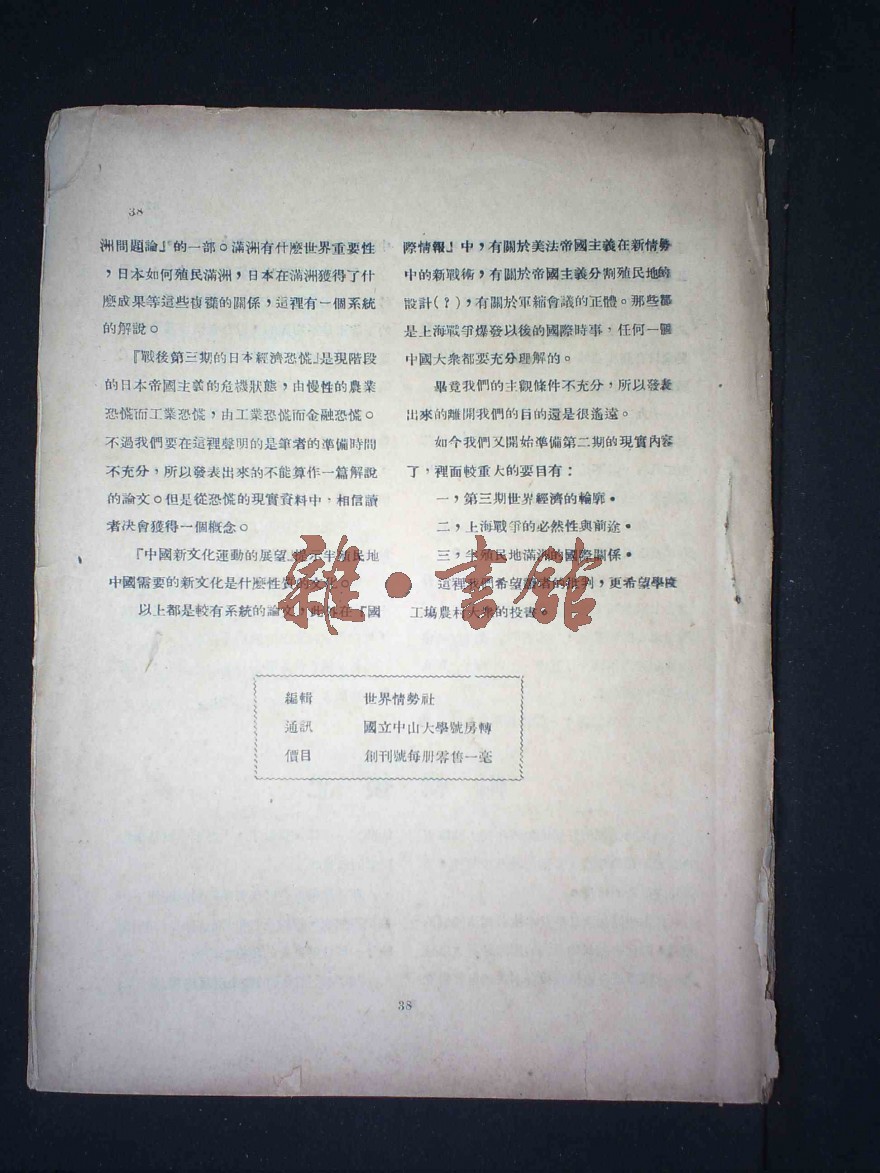 38
洲問題論』的一部。滿洲有什麼世界重要性
，日本如何殖民滿洲，日本在滿洲獲得了什
麼成果等這些複雜的關係，這裡有一個系統
的解說。
『戰後第三期的日本經濟恐慌』是現階段
的日本帝國主義的危機狀態，由慢性的農業
恐慌而工業恐慌，由工業恐慌而金融恐慌。
不過我們要在這裡聲明的是筆者的準備時間
不充分，所以發表出來的不能算作一篇解說
的論文。但是從恐慌的現實資料中，相信讀
者決會獲得一個概念。
『中國新文化運動的展望』提示半殖民地
中國需要的新文化是什麼性質的文化。
以上都是較有系統的論文，此外在『國
際情報』中，有關於美法帝國主義在新情勢
中的新戰術，有關於帝國主義分割殖民地的
設計(？)，有關於軍縮會議的正體。那些都
是上海戰爭爆發以後的國際時事，任何一個
中國大衆都要充分理解的。
畢竟我們的主觀條件不充分，所以發表
出來的離開我們的目的還是很遙遠。
如今我們又開始準備第二期的現實內容
了，裡面較重大的要目有：
一，第三期世界經濟的輪廓。
二，上海戰爭的必然性與前途。
三，半殖民地滿洲的國際關係。
這裡我們希望讀者的批判，更希望學校
工場農村大衆的投書。
雜·書館
編輯 世界情勢社
通訊 國立中山大學號房轉
價目 創刊號每册零售一毫
38